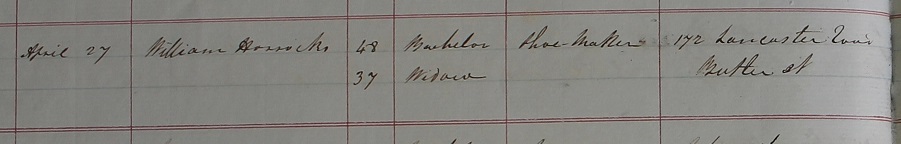 April 27 William Horrocks 48 Bachelor Shoe-Maker 172 Lancaster
37 Widow Butler St